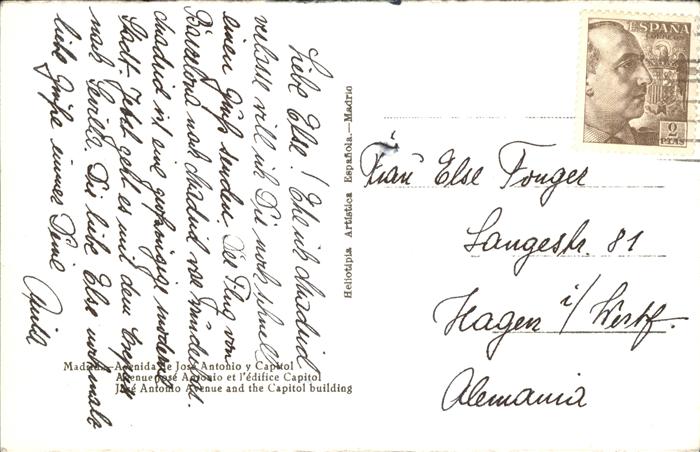 Liebe Else! Ehe ich Madrid
verlasse will ich Dir noch schnell
einen Gruß senden. Der Flug von
Barcelona nach Madrid war wunderbar.
Madrid ist eine großzügige moderne
Stadt. Jetzt geht es mit dem
nach Sevilla. Dir liebe Else nochmals
liebe Grüße immer Deine
Heliotipia Artística Española.—Madrid
ESPAÑA
CORREOS
2
PTAS
Frau Else Fonger
Langestr. 81
Hagen i/Westf.
Alemania
Madrid.—Avenida de José Antonio y Capitol
Avenue José Antonio et l'édifice Capitol
José Antonio Avenue and the Capitol building